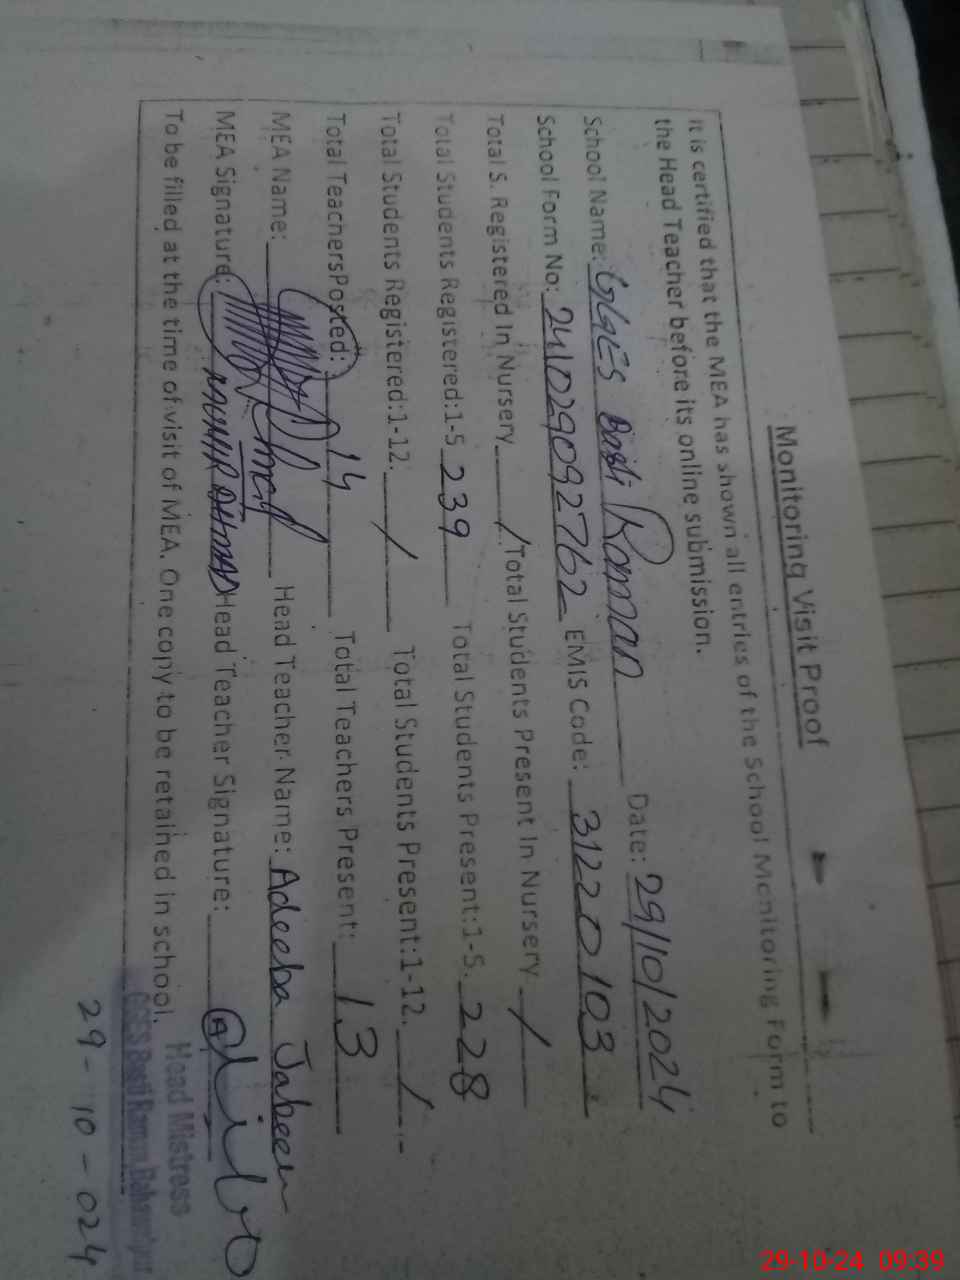 Monitoring Visit Proof
It is certified that the MEA has shown all entries of the School Monitoring Form to
the Head Teacher before its online submission.
School Name: GGES Basti Raman Date: 29/10/2024
School Form No: 241029092762 EMIS Code: 31220103
Total S. Registered In Nursery / Total Students Present In Nursery /
Total Students Registered:1-5 239 Total Students Present:1-5. 228
Total Students Registered:1-12. / Total Students Present:1-12. /
Total TeachersPosted: 14 Total Teachers Present: 13
MEA Name: Head Teacher Name: Adeeba Jabeen
MEA Signature: Head Teacher Signature:
To be filled at the time of visit of MEA. One copy to be retained in school.
Head Mistress
GGES Basti Raman Bahawalpur
29-10-024
29-10-24 09:39